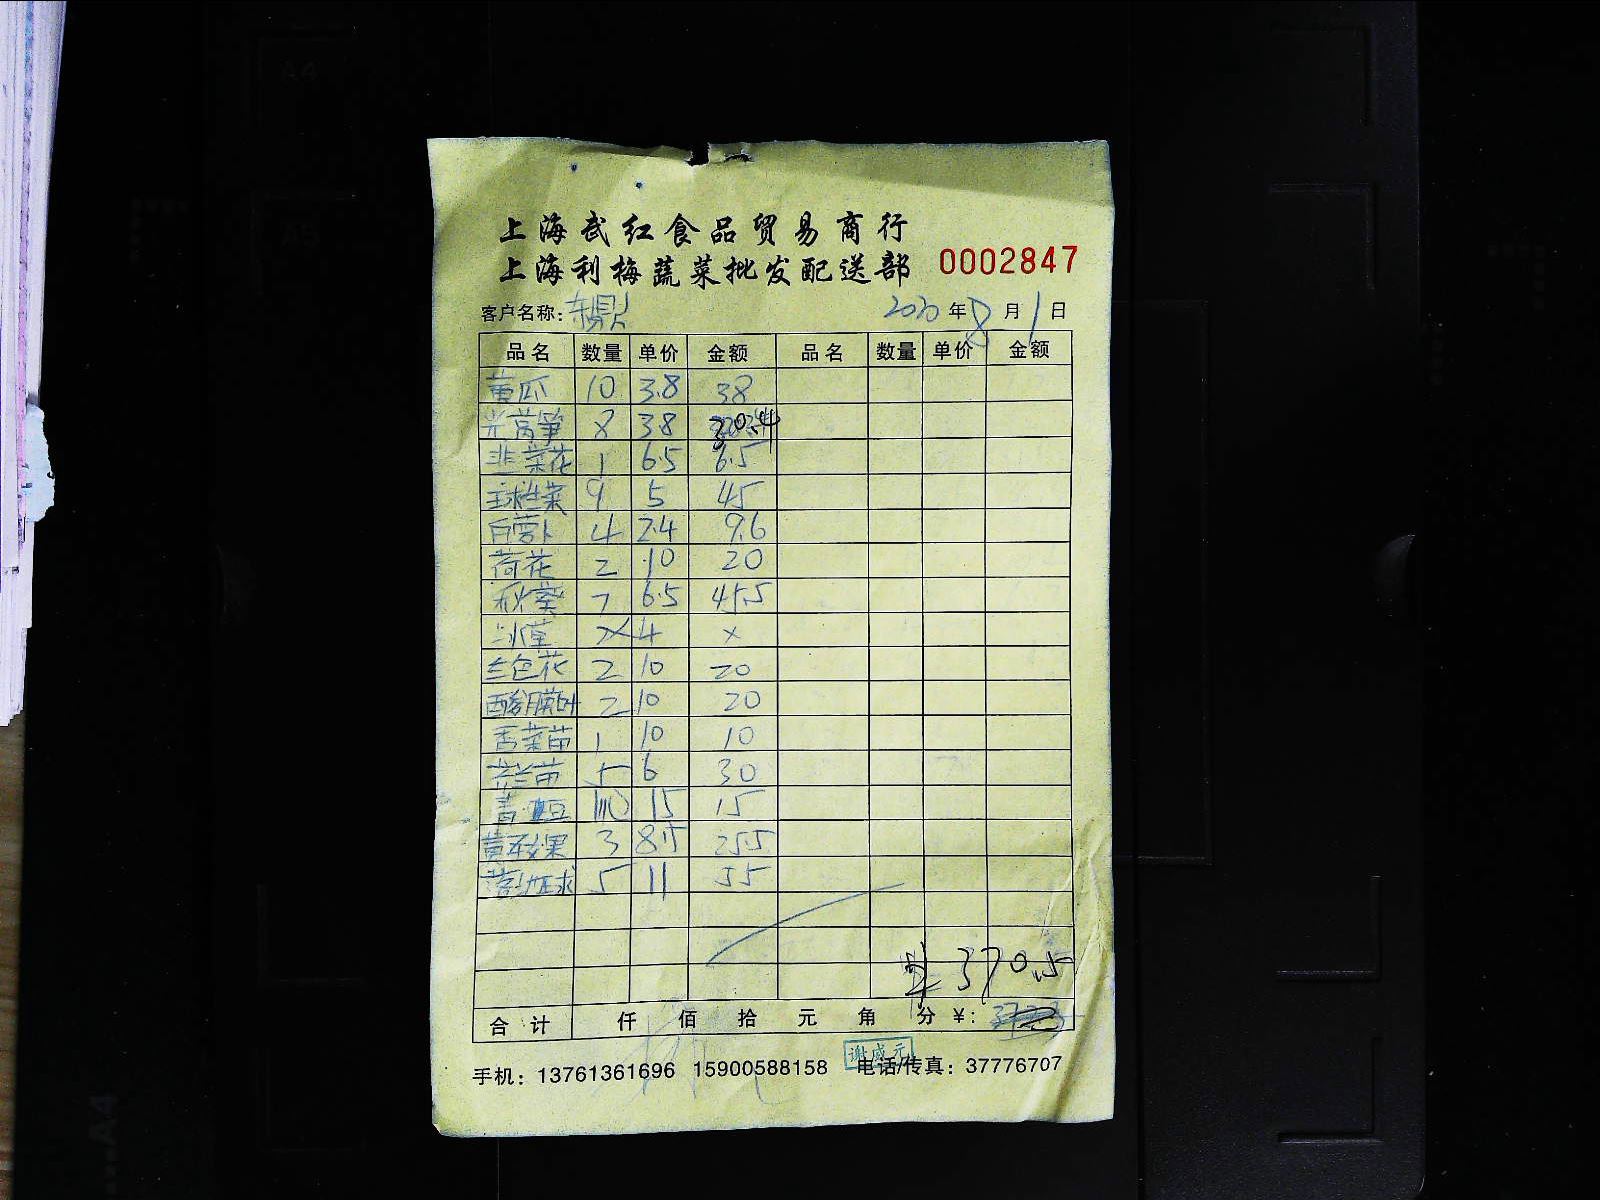 上海武红食品贸易商行
上海利梅蔬菜批发配送部 0002847
客户名称: 东鼎 2020年8月1日
品名 数量 单价 金额 品名 数量 单价 金额
黄瓜 10 3.8 38
光莴笋 8 3.8
韭菜花 1 6.5 6.5
球生菜 9 5 45
白萝卜 4 2.4 9.6
荷花 2 10 20
秋葵 7 6.5 45.5
冰草 4 ×
兰包花 2 10 20
酸膜叶 2 10 20
香菜苗 1 10 10
芥兰苗 5 6 30
青豆 15 15
黄 果 3 8.5 25.5
5 11 55
370.5
合计 仟 佰 拾 元 角 分 ¥:
谢咸元
手机: 13761361696 15900588158 电话/传真: 37776707